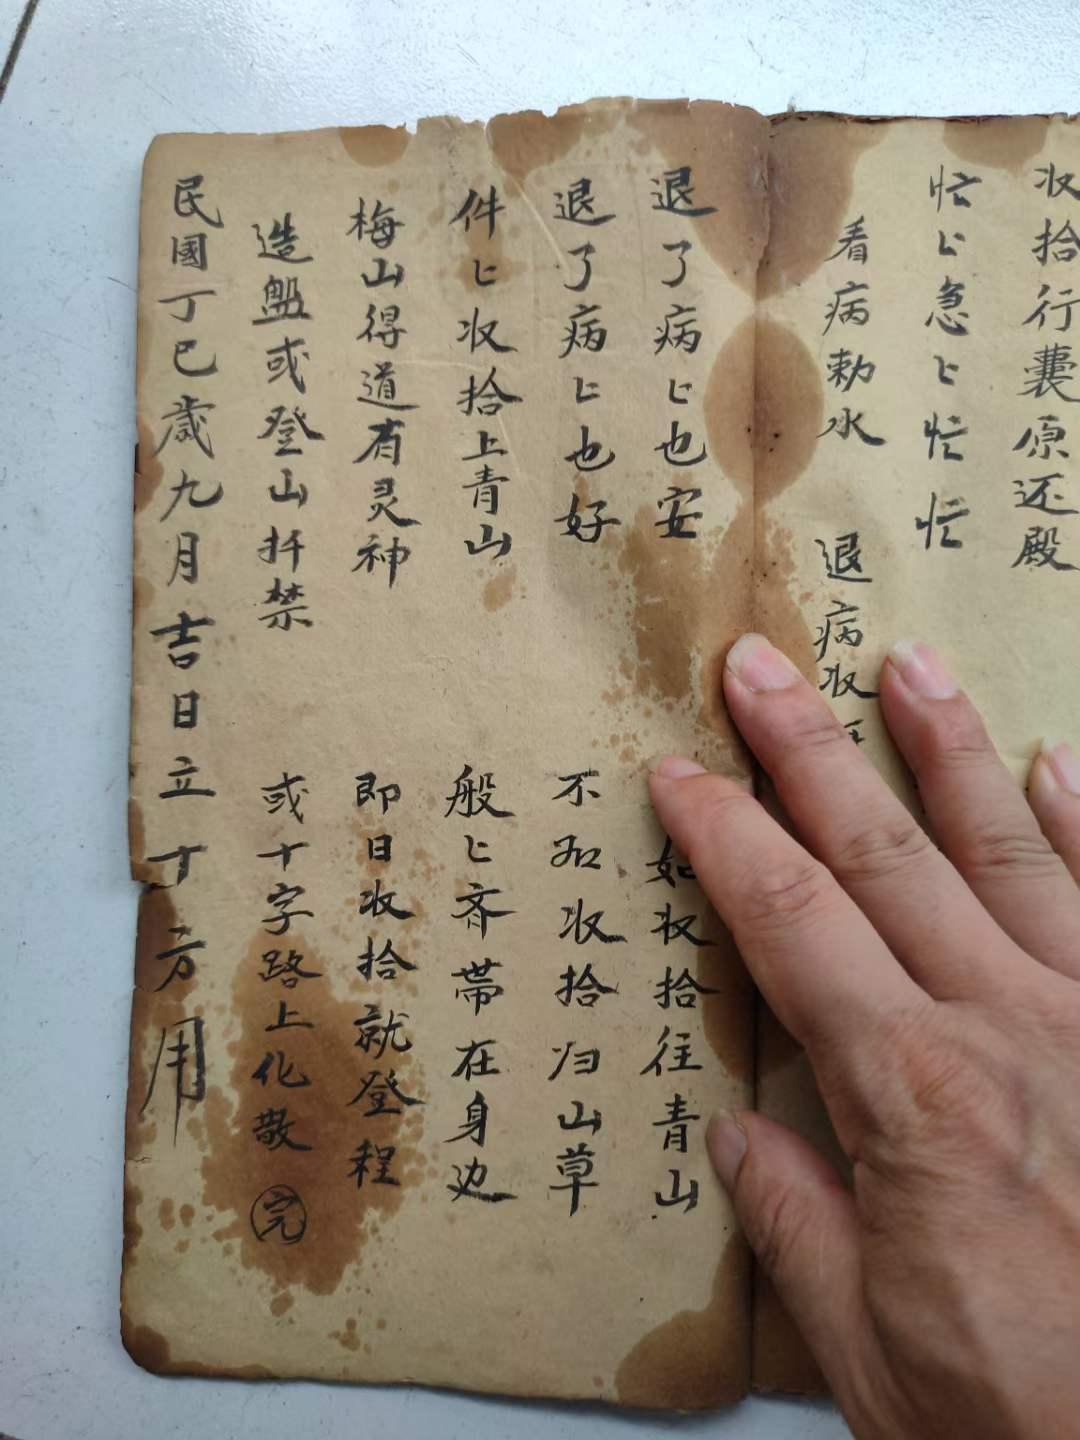 収拾行囊原还殿
忙匕急匕忙忙
看病勅水 退病収
退了病匕也安 如収拾往青山
退了病匕也好 不如収拾归山草
件匕収拾上青山 般匕齐帯在身边
梅山得道有灵神 即日収拾就登程
造盤或登山扦禁 或十字路上化散 完
民國丁巳歲九月吉日立 丁方用